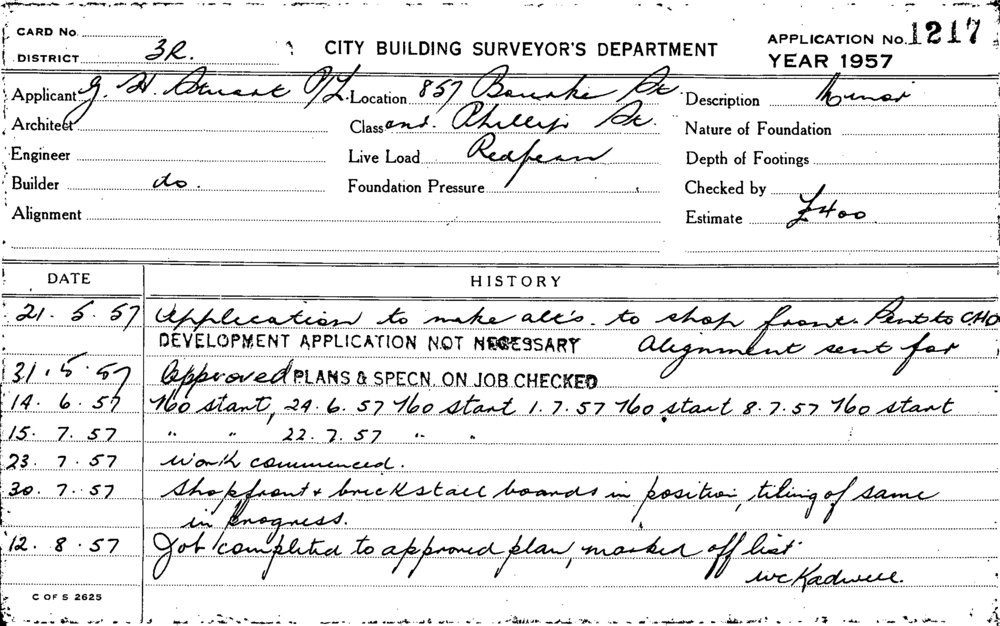 CARD No.
DISTRICT 3R.
CITY BUILDING SURVEYOR'S DEPARTMENT
APPLICATION No. 1217
YEAR 1957
Applicant G. H. Stuart P/L. Location 857 Bourke St. Description Minor
Architect Class and. Phillip St. Nature of Foundation
Engineer Live Load Redfern Depth of Footings
Builder do. Foundation Pressure Checked by
Alignment Estimate £400
DATE HISTORY
21. 5. 57 Application to make alt's. to shop front. Sent to CHO
DEVELOPMENT APPLICATION NOT NECESSARY Alignment sent for
31. 5. 57 Approved PLANS & SPECN. ON JOB CHECKED
14. 6. 57 No start, 24. 6. 57 No start 1. 7. 57 No start 8. 7. 57 No start
15. 7. 57 " " 22. 7. 57 " "
23. 7. 57 Work commenced.
30. 7. 57 Shopfront & brick stall boards in position, tiling of same
in progress.
12. 8. 57 Job completed to approved plan, marked off list.
C OF S 2625